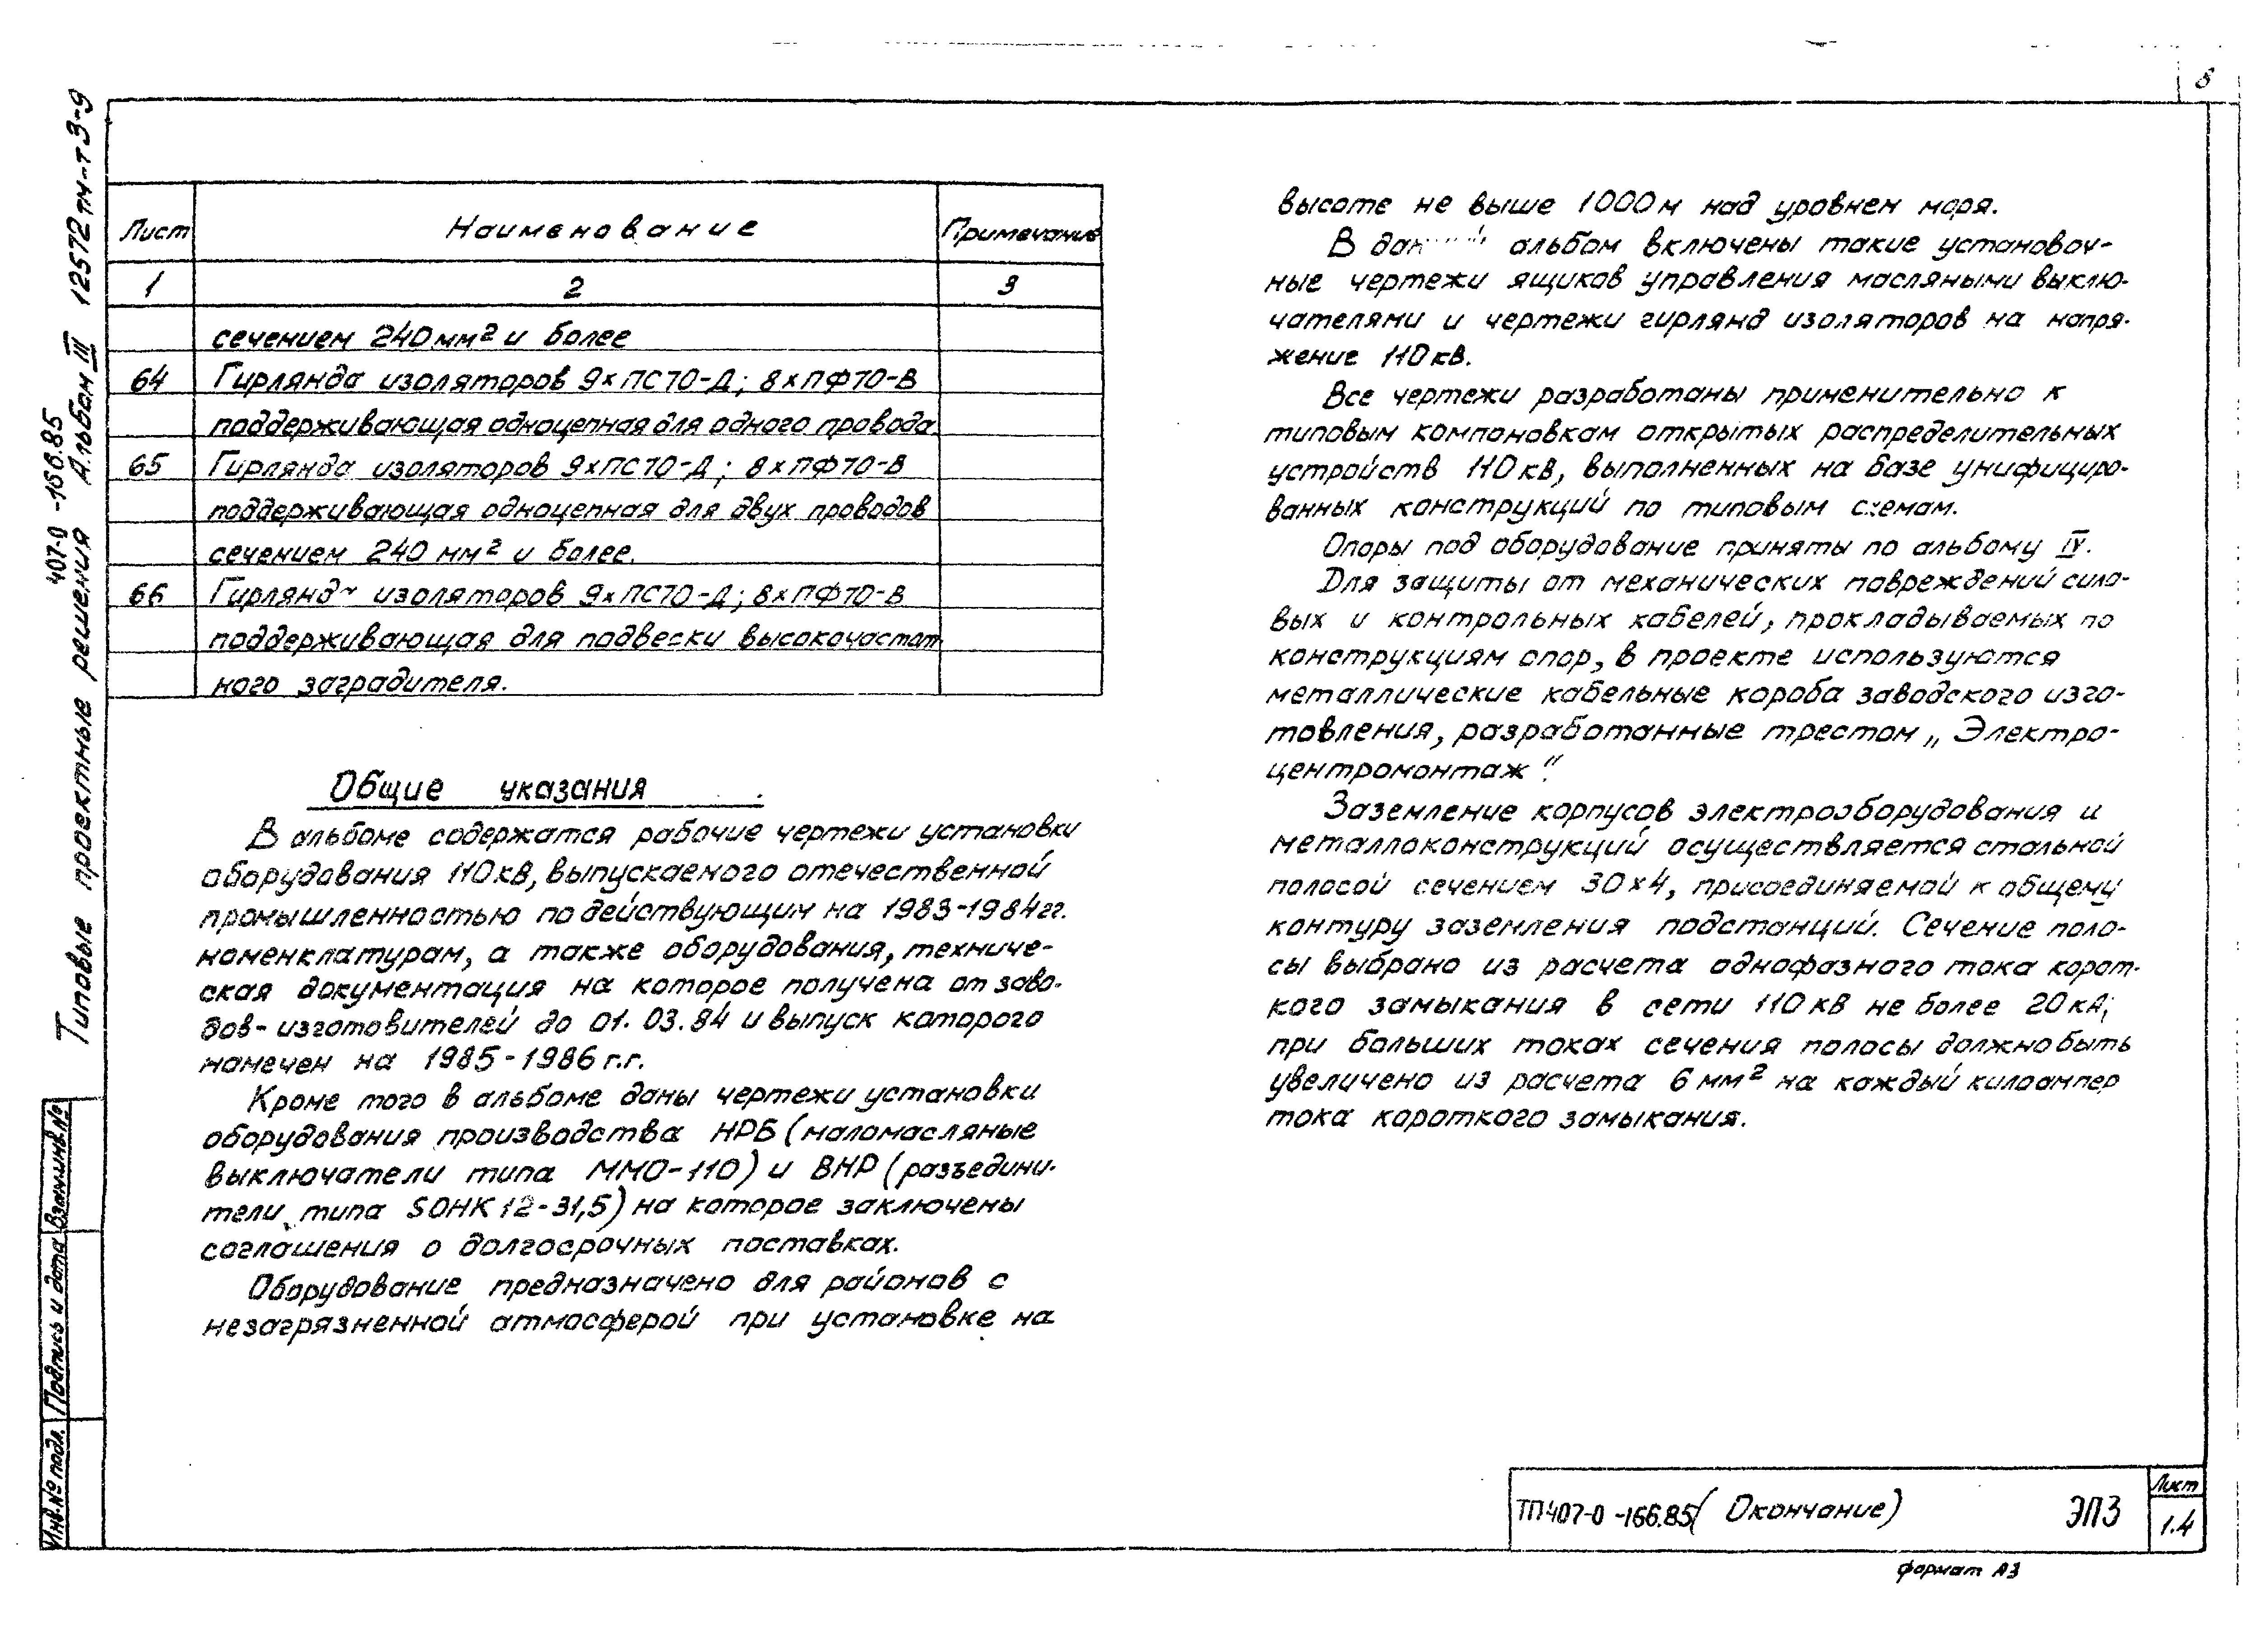 8
407-0 -166.85
Типовые проектные решения Альбом III 12572тм-т3-9
Лист Наименование Примечание
1 2 3
сечением 240мм² и более
64 Гирлянда изоляторов 9хПС70-Д; 8хПФ70-В
поддерживающая одноцепная для одного провода.
65 Гирлянда изоляторов 9хПС70-Д; 8хПФ70-В
поддерживающая одноцепная для двух проводов
сечением 240 мм² и более.
66 изоляторов 9хПС70-Д; 8хПФ70-В
поддерживающая для подвески высокочастот
ного заградителя.
Общие указания
В альбоме содержатся рабочие чертежи установки
оборудования 110кв, выпускаемого отечественной
промышленностью по действующим на 1983-1984гг.
номенклатурам, а также оборудования, техниче-
ская документация на которое получена от заво-
дов-изготовителей до 01.03.84 и выпуск которого
намечен на 1985-1986 г.г.
Кроме того в альбоме даны чертежи установки
оборудования производства НРБ (маломасляные
выключатели типа ММО-110) и ВНР (разъедини-
тели типа SОНК 12-31,5) на которое заключены
соглашения о долгосрочных поставках.
Оборудование предназначено для районов с
незагрязненной атмосферой при установке на
высоте не выше 1000м над уровнем моря.
В альбом включены такие установоч-
ные чертежи ящиков управления масляными выклю-
чателями и чертежи гирлянд изоляторов на напря-
жение 110кв.
Все чертежи разработаны применительно к
типовым компоновкам открытых распределительных
устройств 110кв, выполненных на базе унифициро-
ванных конструкций по типовым схемам.
Опоры под оборудование приняты по альбому IV.
Для защиты от механических повреждений сило-
вых и контрольных кабелей, прокладываемых по
конструкциям опор, в проекте используются
металлические кабельные короба заводского изго-
товления, разработанные трестом „Электро-
центромонтаж".
Заземление корпусов электрооборудования и
металлоконструкций осуществляется стальной
полосой сечением 30х4, присоединяемой к общему
контуру заземления подстанций. Сечение поло-
сы выбрано из расчета однофазного тока корот-
кого замыкания в сети 110кв не более 20кА;
при больших токах сечения полосы должно быть
увеличено из расчета 6мм² на каждый килоампер
тока короткого замыкания.
Инв.№ подл. Подпись и дата Взам.инв.№
ТП407-0 -166.85 (Окончание) ЭПЗ Лист
1.4
формат А3